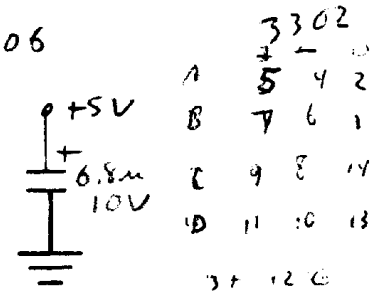 06
3302
+ - o
A 5 4 2
B 7 6 1
C 9 8 14
D 11 10 13
3+ 12 G
+5V
+
6.8u
10V